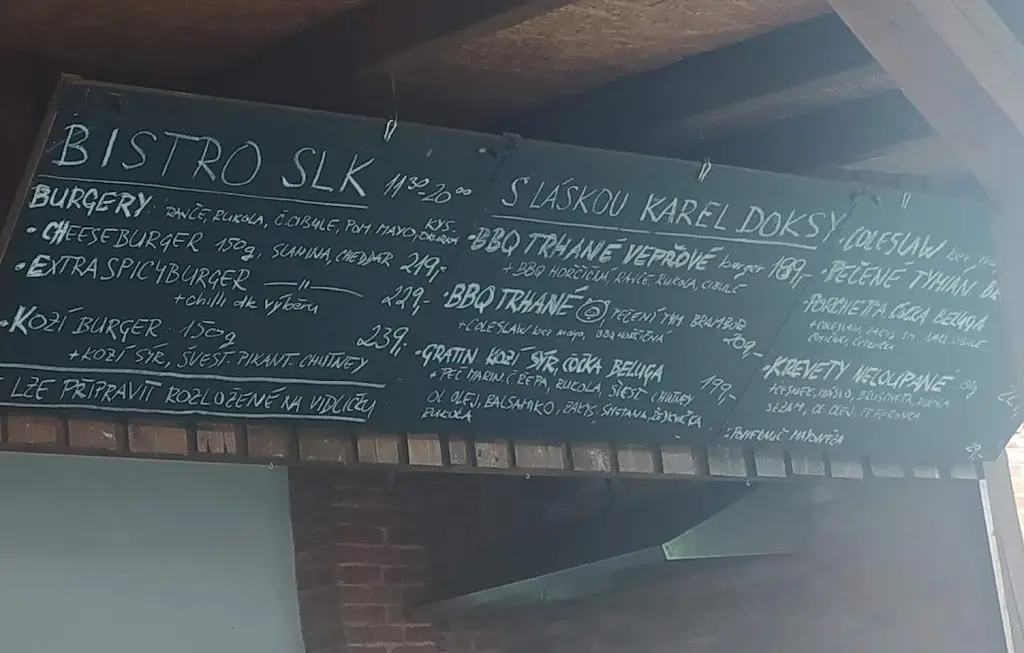 BISTRO SLK 11³⁰-20⁰⁰
BURGERY: RAJČE, RUKOLA, Č.CIBULE, POM MAYO, KYS. OKURKA
• CHEESEBURGER 150g, SLANINA, CHEDDAR 219,-
• EXTRASPICYBURGER —"— 229,-
+ chilli dle výběru
• KOZÍ BURGER: 150g 239,-
+ KOZÍ SÝR, ŠVEST. PIKANT. CHUTNEY
LZE PŘIPRAVIT ROZLOŽENÉ NA VIDLIČKU
S LÁSKOU KAREL DOKSY
• BBQ TRHANÉ VEPŘOVÉ burger 189,-
+ BBQ HOŘČIČNÁ, RAJČE, RUKOLA, CIBULE
• BBQ TRHANÉ PEČENÍ TYM BRAMBOR 209,-
+ COLESLAW bez mayo, BBQ HOŘČIČNÁ
• GRATIN KOZÍ SÝR, ČOČKA BELUGA 199,-
+ PEČ. MARIN. Č. ŘEPA, RUKOLA, ŠVEST CHUTNEY
OL OLEJ, BALSAMIKO, ZAKYS. SMETANA,
RUKOLA
• COLESLAW bez
• PEČENÉ TYMIÁN
• PORCHETTA, ČOČKA BELUGA
• KREVETY NELOUPANÉ
ČESNEK, MÁSLO, BRUSCHETTA, RUKOLA
SEZAM, OL OLEJ, FEFERONKA